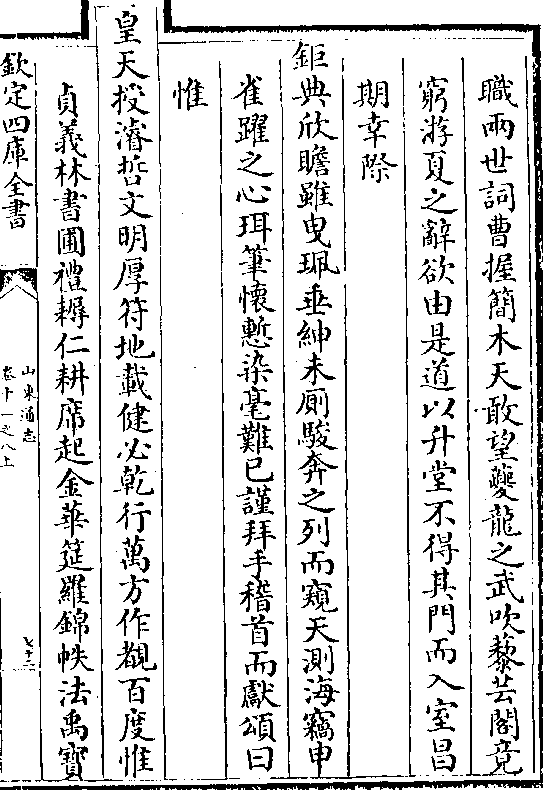 職兩世詞曹握簡木天敢望夔龍之武吹藜芸閣竟
窮游夏之辭欲由是道以升堂不得其門而入室昌
期幸際
鉅典欣瞻雖曳珮垂紳未厠駿奔之列而窺天測海竊申
雀躍之心珥筆懷慙染毫難已謹拜手稽首而獻頌曰
惟
皇天授濬哲文明厚符地載健必乾行萬方作覩百度惟
貞義林書圃禮耨仁耕席起金華筵羅錦帙法禹寶
欽定四庫全書
山東通志
卷十一之八上
七十二